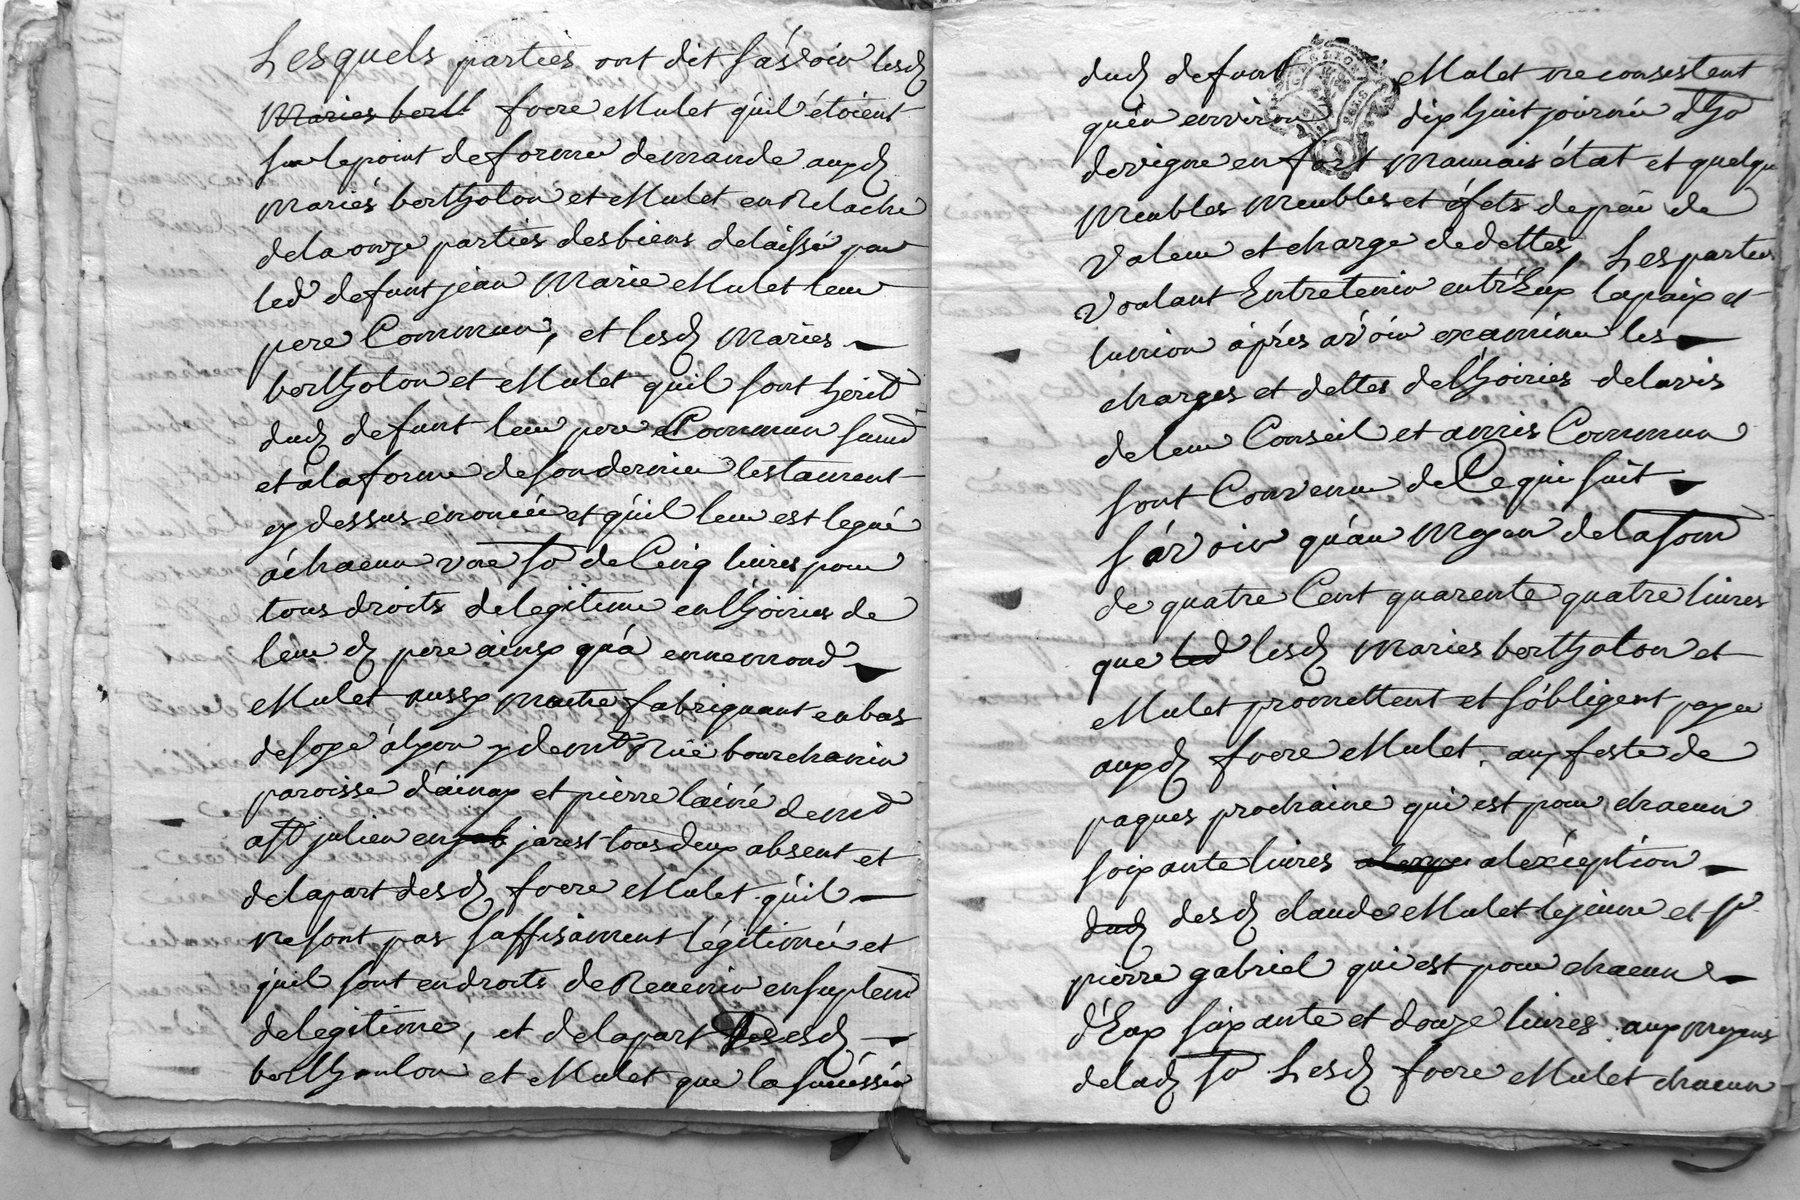 Lesquels parties ont dit sàsvoir lesd
Maries bert frere Mulet quil étoient
sur lepoint deformer demande auxd
mariés bertholon et Mulet en Relache
delaonze parties desbiens delaissé par
led defunt jean Marie Mulet leur
pere Commun, et lesd maries
bertholon et Mulet quil sont herit
dud defunt leur pere Commun suivt
et àlaforme desondernier testament
cy dessus enoncée et quil leur est legué
àchacun une so de Cinq livres pour
tous droits delegitime enlhoiries de
leur d pere ainsy quà ennemond
Mulet aussy maitre fabriquant enbas
desoye àlyon y demt Rüe bourchanin
paroisse d'ainay et pierre lainé demt
a St julien en jarest tous deux absent et
delapart desd frere Mulet quil
nesont pas saffisament légitimée et
quil sont endroits deRevenir ensuplemt
delegitime, et delapart desd
berthoulon et Mulet que la succéssion
dud defunt Mulet neconsistent
quèn environ dixhuit journée dho
devigne en fort mauvais état et quelque
Meubles meubles et éfets depeu de
valeur et charge dedettes. Les parties
voulant Entretenir entrEux lapaix et
lunion àprés avoir examiner les
charges et dettes delhoiries delavis
deleur Conseil et amis Commun
sont Convenu deCequi suit
sàvoir quàu moyen delasom
de quatre Cent quarente quatre livres
que led lesd maries bertholon et
Mulet promettent et sobligent payer
auxd frere Mulet, aux feste de
paques prochaine qui est pour chacun
soixante livres alexception
dud desd claude Mulet lejeune et sr
pierre gabriel qui est pour chacun
d'Eux soixante et douze livres. aux moyens
delad so Lesd frere Mulet chacun